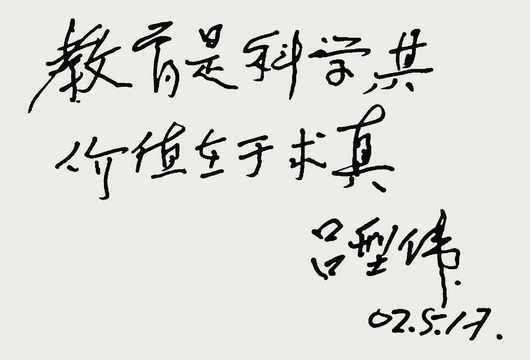 教育是科学,其
价值在于求真
吕型伟
02.5.17.